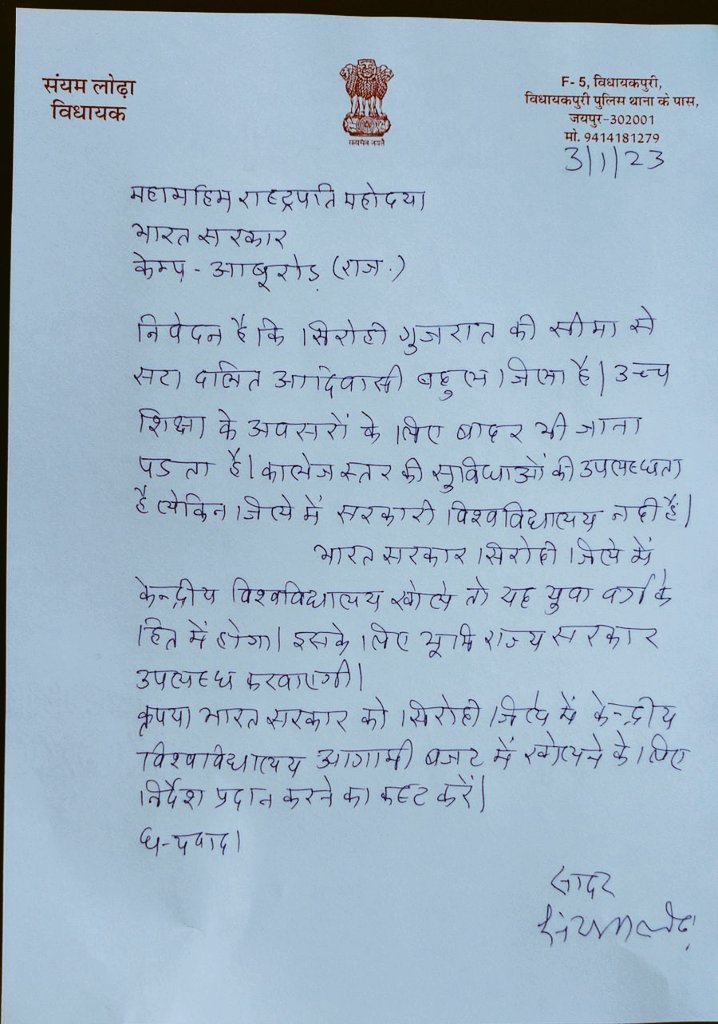 संयम लोढ़ा
विधायक
सत्यमेव जयते
F- 5, विधायकपुरी,
विधायकपुरी पुलिस थाना के पास,
जयपुर-302001
मो. 9414181279
3/1/23
महामहिम राष्ट्रपति महोदया
भारत सरकार
केम्प - आबूरोड़ (राज.)
निवेदन है कि सिरोही गुजरात की सीमा से
सटा दलित आदिवासी बहुल जिला है। उच्च
शिक्षा के अवसरों के लिए बाहर भी जाना
पडता है। कालेज स्तर की सुविधाओं की उपलब्धता
है लेकिन जिले में सरकारी विश्वविद्यालय नही है।
भारत सरकार सिरोही जिले में
केन्द्रीय विश्वविद्यालय खोले तो यह युवा वर्ग के
हित में होगा। इसके लिए भूमि राज्य सरकार
उपलब्ध करवाएगी।
कृपया भारत सरकार को सिरोही जिले में केन्द्रीय
विश्वविद्यालय आगामी बजट में खोलने के लिए
निर्देश प्रदान करने का कष्ट करें।
धन्यवाद।
सादर
संयम लोढ़ा